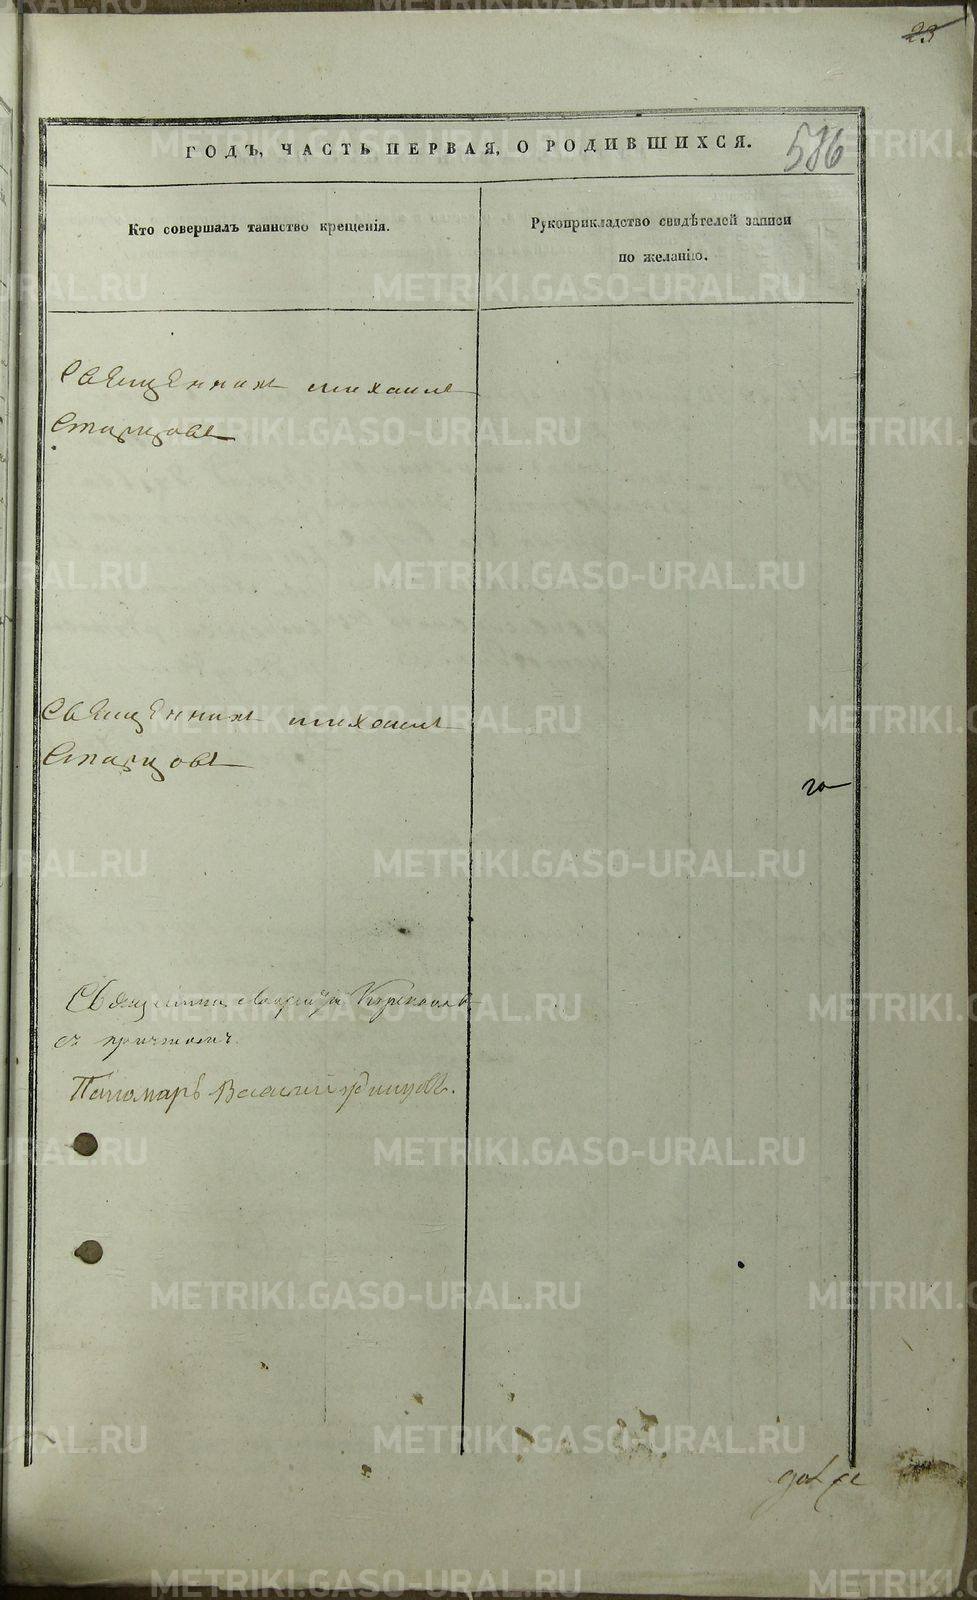 23
586
ГОДЪ, ЧАСТЬ ПЕРВАЯ, О РОДИВШИХСЯ.
Кто совершалъ таинство крещенія.
Рукоприкладство свидѣтелей записи
по желанію.
Священникъ Михаилъ
Старцовъ
Священникъ Михаилъ
Старцовъ
съ причтомъ
Пономарь Василій
METRIKI.GASO-URAL.RU